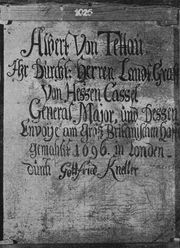 1025
Albert Von Tettau.
Ihr Durchl: Herren Land Graf
Von Hessen Cassel
General Major, und Dessen
Envoÿe am Groß Britanischem Hoff
gemahlt 1696. in Londen
durch Gottfried Kneller